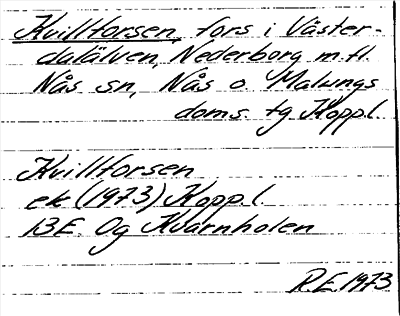 Kvillforsen, fors i Väster-
dalälven, Nederborg m.fl.
Nås sn, Nås o Malungs
doms. tg Kopp.l.
Kvillforsen
ek (1973) Kopp.l.
13E Og Kvarnholen
R.E. 1973